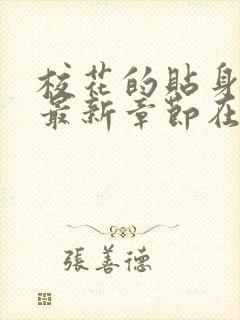 校花的貼身
最新章節在
張善德